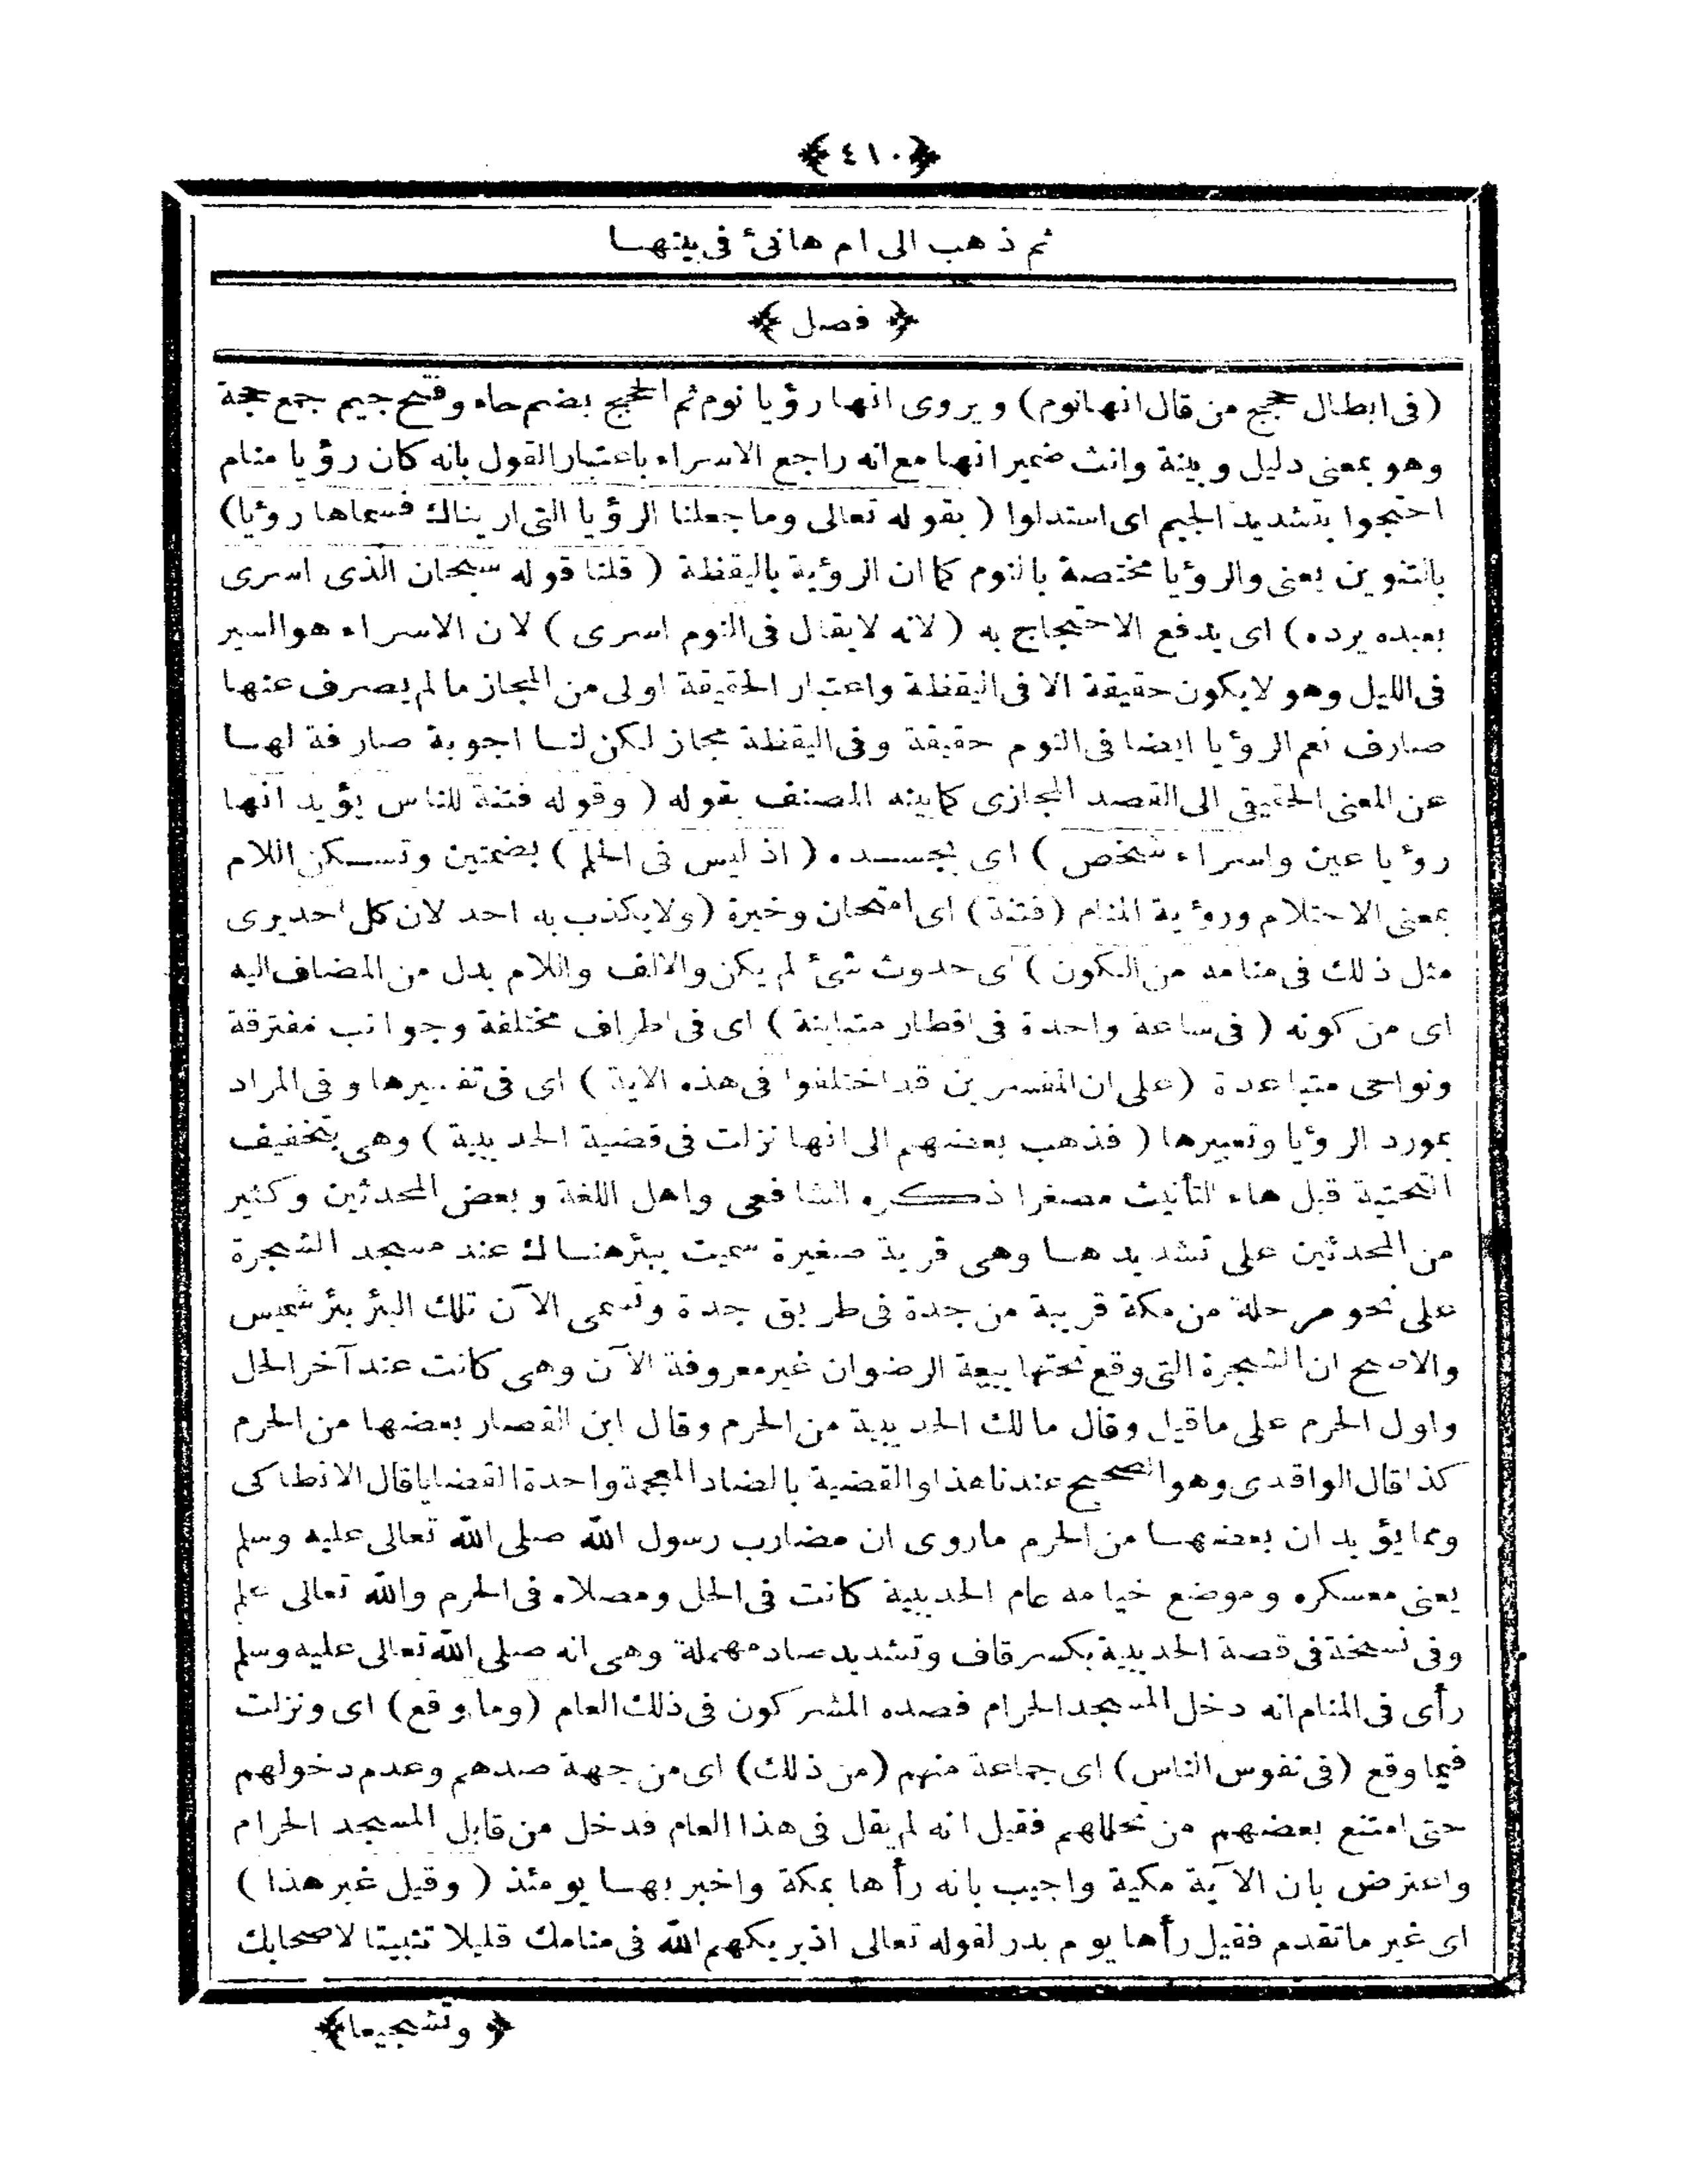 ﴿٤١٠﴾
ثم ذهب الى ام هانئ فى بيتها
﴿ فصل ﴾
(فى ابطال حجج من قال انها نوم) ويروى انها رؤيا نوم ثم الحجج بضم حاء وفتح جيم جمع حجة
وهو بمعنى دليل وبينة وانث ضمير انها مع انه راجع الاسراء باعتبار القول بانه كان رؤيا منام
احتجوا بتشديد الجيم اى استدلوا (بقوله تعالى وما جعلنا الرؤيا التى اريناك فسماها رؤيا)
بالتنوين يعنى والرؤيا مختصة بالنوم كما ان الرؤية باليقظة (قلنا قوله سبحان الذى اسرى
بعبده يرده) اى يدفع الاحتجاج به (لانه لا يقال فى النوم اسرى) لان الاسراء هو السير
فى الليل وهو لا يكون حقيقة الا فى اليقظة واعتبار الحقيقة اولى من المجاز ما لم يصرف عنها
صارف نعم الرؤيا ايضا فى النوم حقيقة وفى اليقظة مجاز لكن لنا اجوبة صارفة لها
عن المعنى الحقيقى الى القصد المجازى كما بينه المصنف بقوله (وقوله فتنة للناس يؤيد انها
رؤيا عين واسراء شخص) اى بجسده (اذ ليس فى الحلم) بضمتين وتسكن اللام
بمعنى الاحتلام ورؤية المنام (فتنة) اى امتحان وخبرة (ولا يكذب به احد لان كل احد يرى
مثل ذلك فى منامه من الكون) اى حدوث شئ لم يكن والالف واللام بدل من المضاف اليه
اى من كونه (فى ساعة واحدة فى اقطار متباينة) اى فى اطراف مختلفة وجوانب مفترقة
ونواحى متباعدة (على ان المفسرين قد اختلفوا فى هذه الاية) اى فى تفسيرها وفى المراد
بمورد الرؤيا وتعبيرها (فذهب بعضهم الى انها نزلت فى قضية الحديبية) وهى بتخفيف
التحتية قبل هاء التأنيث مصغرا ذكره الشافعى واهل اللغة وبعض المحدثين وكثير
من المحدثين على تشديدها وهى قرية صغيرة سميت ببئر هناك عند مسجد الشجرة
على نحو مرحلة من مكة قريبة من جدة فى طريق جدة وتسمى الآن تلك البئر بئر شميس
والاصح ان الشجرة التى وقع تحتها بيعة الرضوان غير معروفة الآن وهى كانت عند آخر الحل
واول الحرم على ما قيل وقال مالك الحديبية من الحرم وقال ابن القصار بعضها من الحرم
كذا قال الواقدى وهو الصحيح عندنا هذا والقضية بالضاد المعجمة واحدة القضايا قال الانطاكى
ومما يؤيد ان بعضها من الحرم ماروى ان مضارب رسول الله صلى الله تعالى عليه وسلم
يعنى معسكره وموضع خيامه عام الحديبية كانت فى الحل ومصلاه فى الحرم والله تعالى علم
وفى نسخة فى قصة الحديبية بكسر قاف وتشديد صاد مهملة وهى انه صلى الله تعالى عليه وسلم
رأى فى المنام انه دخل المسجد الحرام فصده المشركون فى ذلك العام (وما وقع) اى ونزلت
فيما وقع (فى نفوس الناس) اى جماعة منهم (من ذلك) اى من جهة صدهم وعدم دخولهم
حتى امتنع بعضهم من تحللهم فقيل انه لم يقل فى هذا العام فدخل من قابل المسجد الحرام
واعترض بان الآية مكية واجيب بانه رأها بمكة واخبر بها يومئذ (وقيل غير هذا)
اى غير ما تقدم فقيل رأها يوم بدر لقوله تعالى اذ يريكهم الله فى منامك قليلا تثبيتا لاصحابك
﴿ وتشجيعا ﴾